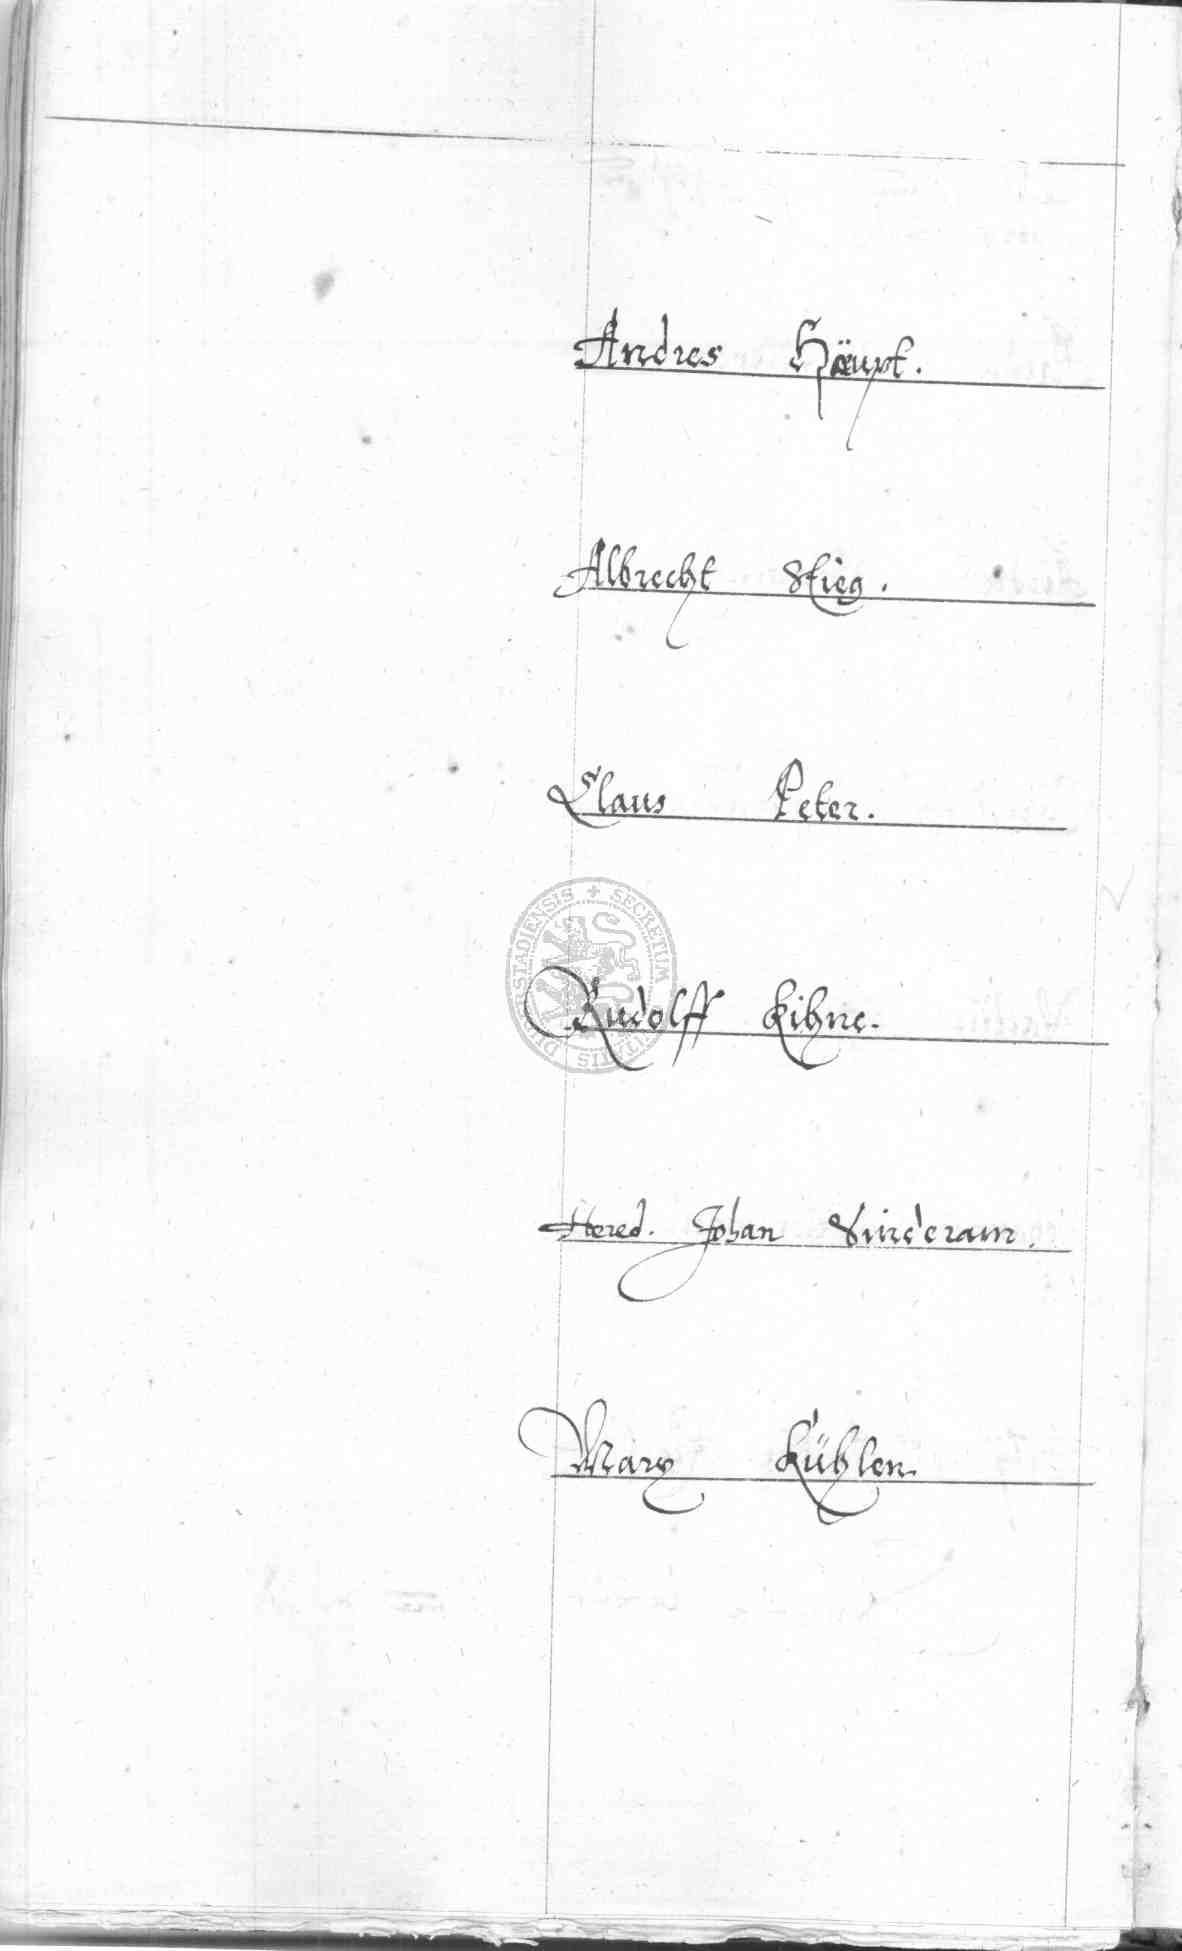 Andres Häupt.
Albrecht Stieg.
Claus Peter.
Rudolff Kihne.
Hered. Johan Sinderam.
Marx Kühlen.
SECRETUM
STADIENSIS